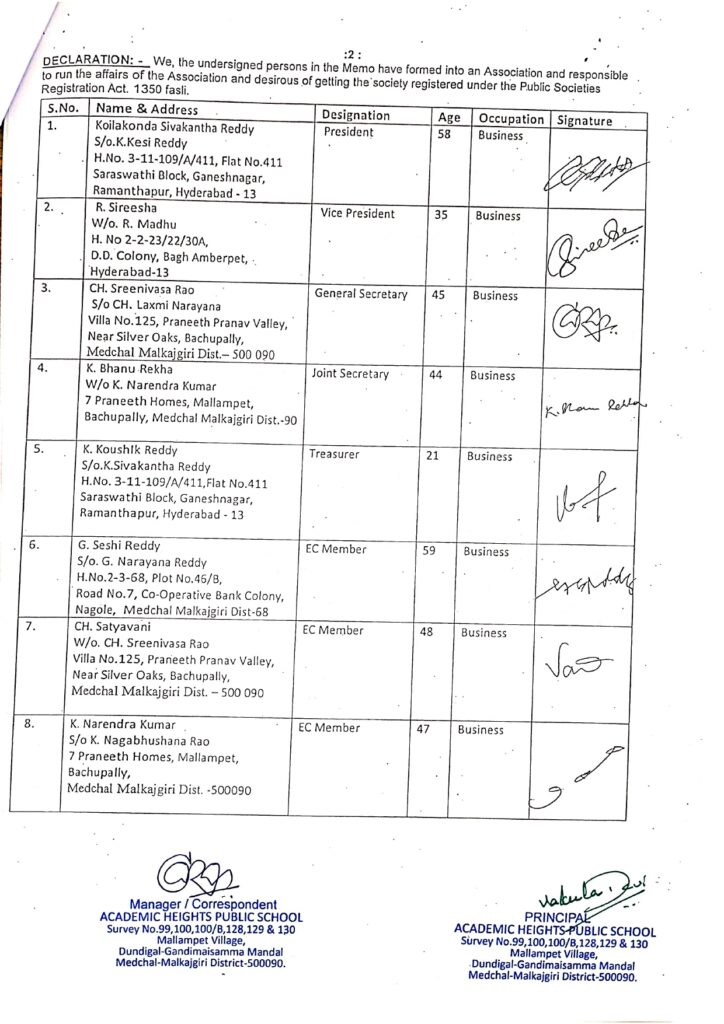 :2:
DECLARATION: - We, the undersigned persons in the Memo have formed into an Association and responsible
to run the affairs of the Association and desirous of getting the society registered under the Public Societies
Registration Act. 1350 fasli.
S.No. Name & Address Designation Age Occupation Signature
1. Koilakonda Sivakantha Reddy President 58 Business
S/o.K.Kesi Reddy
H.No. 3-11-109/A/411, Flat No.411
Saraswathi Block, Ganeshnagar,
Ramanthapur, Hyderabad - 13
2. R. Sireesha Vice President 35 Business
W/o R. Madhu
H. No 2-2-23/22/30A,
D.D. Colony, Bagh Amberpet,
Hyderabad-13
3. CH. Sreenivasa Rao General Secretary 45 Business
S/o CH. Laxmi Narayana
Villa No.125, Praneeth Pranav Valley,
Near Silver Oaks, Bachupally,
Medchal Malkajgiri Dist.– 500 090
4. K. Bhanu Rekha Joint Secretary 44 Business
W/o K. Narendra Kumar
7 Praneeth Homes, Mallampet,
Bachupally, Medchal Malkajgiri Dist.-90
5. K. Koushik Reddy Treasurer 21 Business
S/o.K.Sivakantha Reddy
H.No. 3-11-109/A/411,Flat No.411
Saraswathi Block, Ganeshnagar,
Ramanthapur, Hyderabad - 13
6. G. Seshi Reddy EC Member 59 Business
S/o. G. Narayana Reddy
H.No.2-3-68, Plot No.46/B,
Road No.7, Co-Operative Bank Colony,
Nagole, Medchal Malkajgiri Dist-68
7. CH. Satyavani EC Member 48 Business
W/o. CH. Sreenivasa Rao
Villa No.125, Praneeth Pranav Valley,
Near Silver Oaks, Bachupally,
Medchal Malkajgiri Dist. – 500 090
8. K. Narendra Kumar EC Member 47 Business
S/o K. Nagabhushana Rao
7 Praneeth Homes, Mallampet,
Bachupally,
Medchal Malkajgiri Dist. -500090
Manager / Correspondent
ACADEMIC HEIGHTS PUBLIC SCHOOL
Survey No.99,100,100/B,128,129 & 130
Mallampet Village,
Dundigal-Gandimaisamma Mandal
Medchal-Malkajgiri District-500090.
PRINCIPAL
ACADEMIC HEIGHTS PUBLIC SCHOOL
Survey No.99,100,100/B,128,129 & 130
Mallampet Village,
Dundigal-Gandimaisamma Mandal
Medchal-Malkajgiri District-500090.